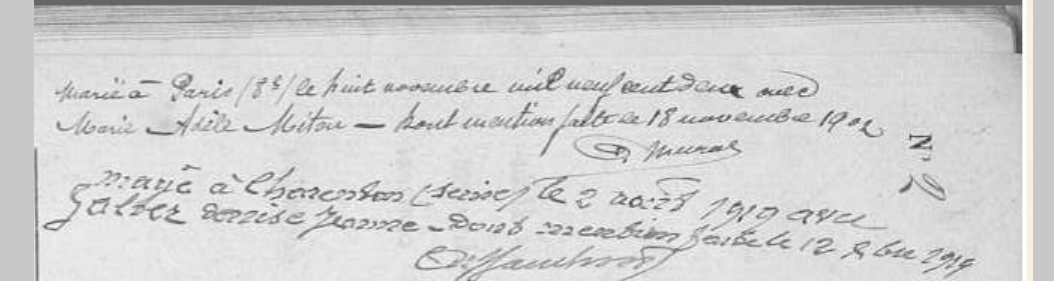 Marié à Paris (8e) le huit novembre mil neuf cent deux avec
Marie Adèle Mitou — dont mention faite le 18 novembre 1902
Marié à Charenton (Seine) le 2 août 1919 avec
Denise Jeanne - dont mention faite le 12 1919
N.